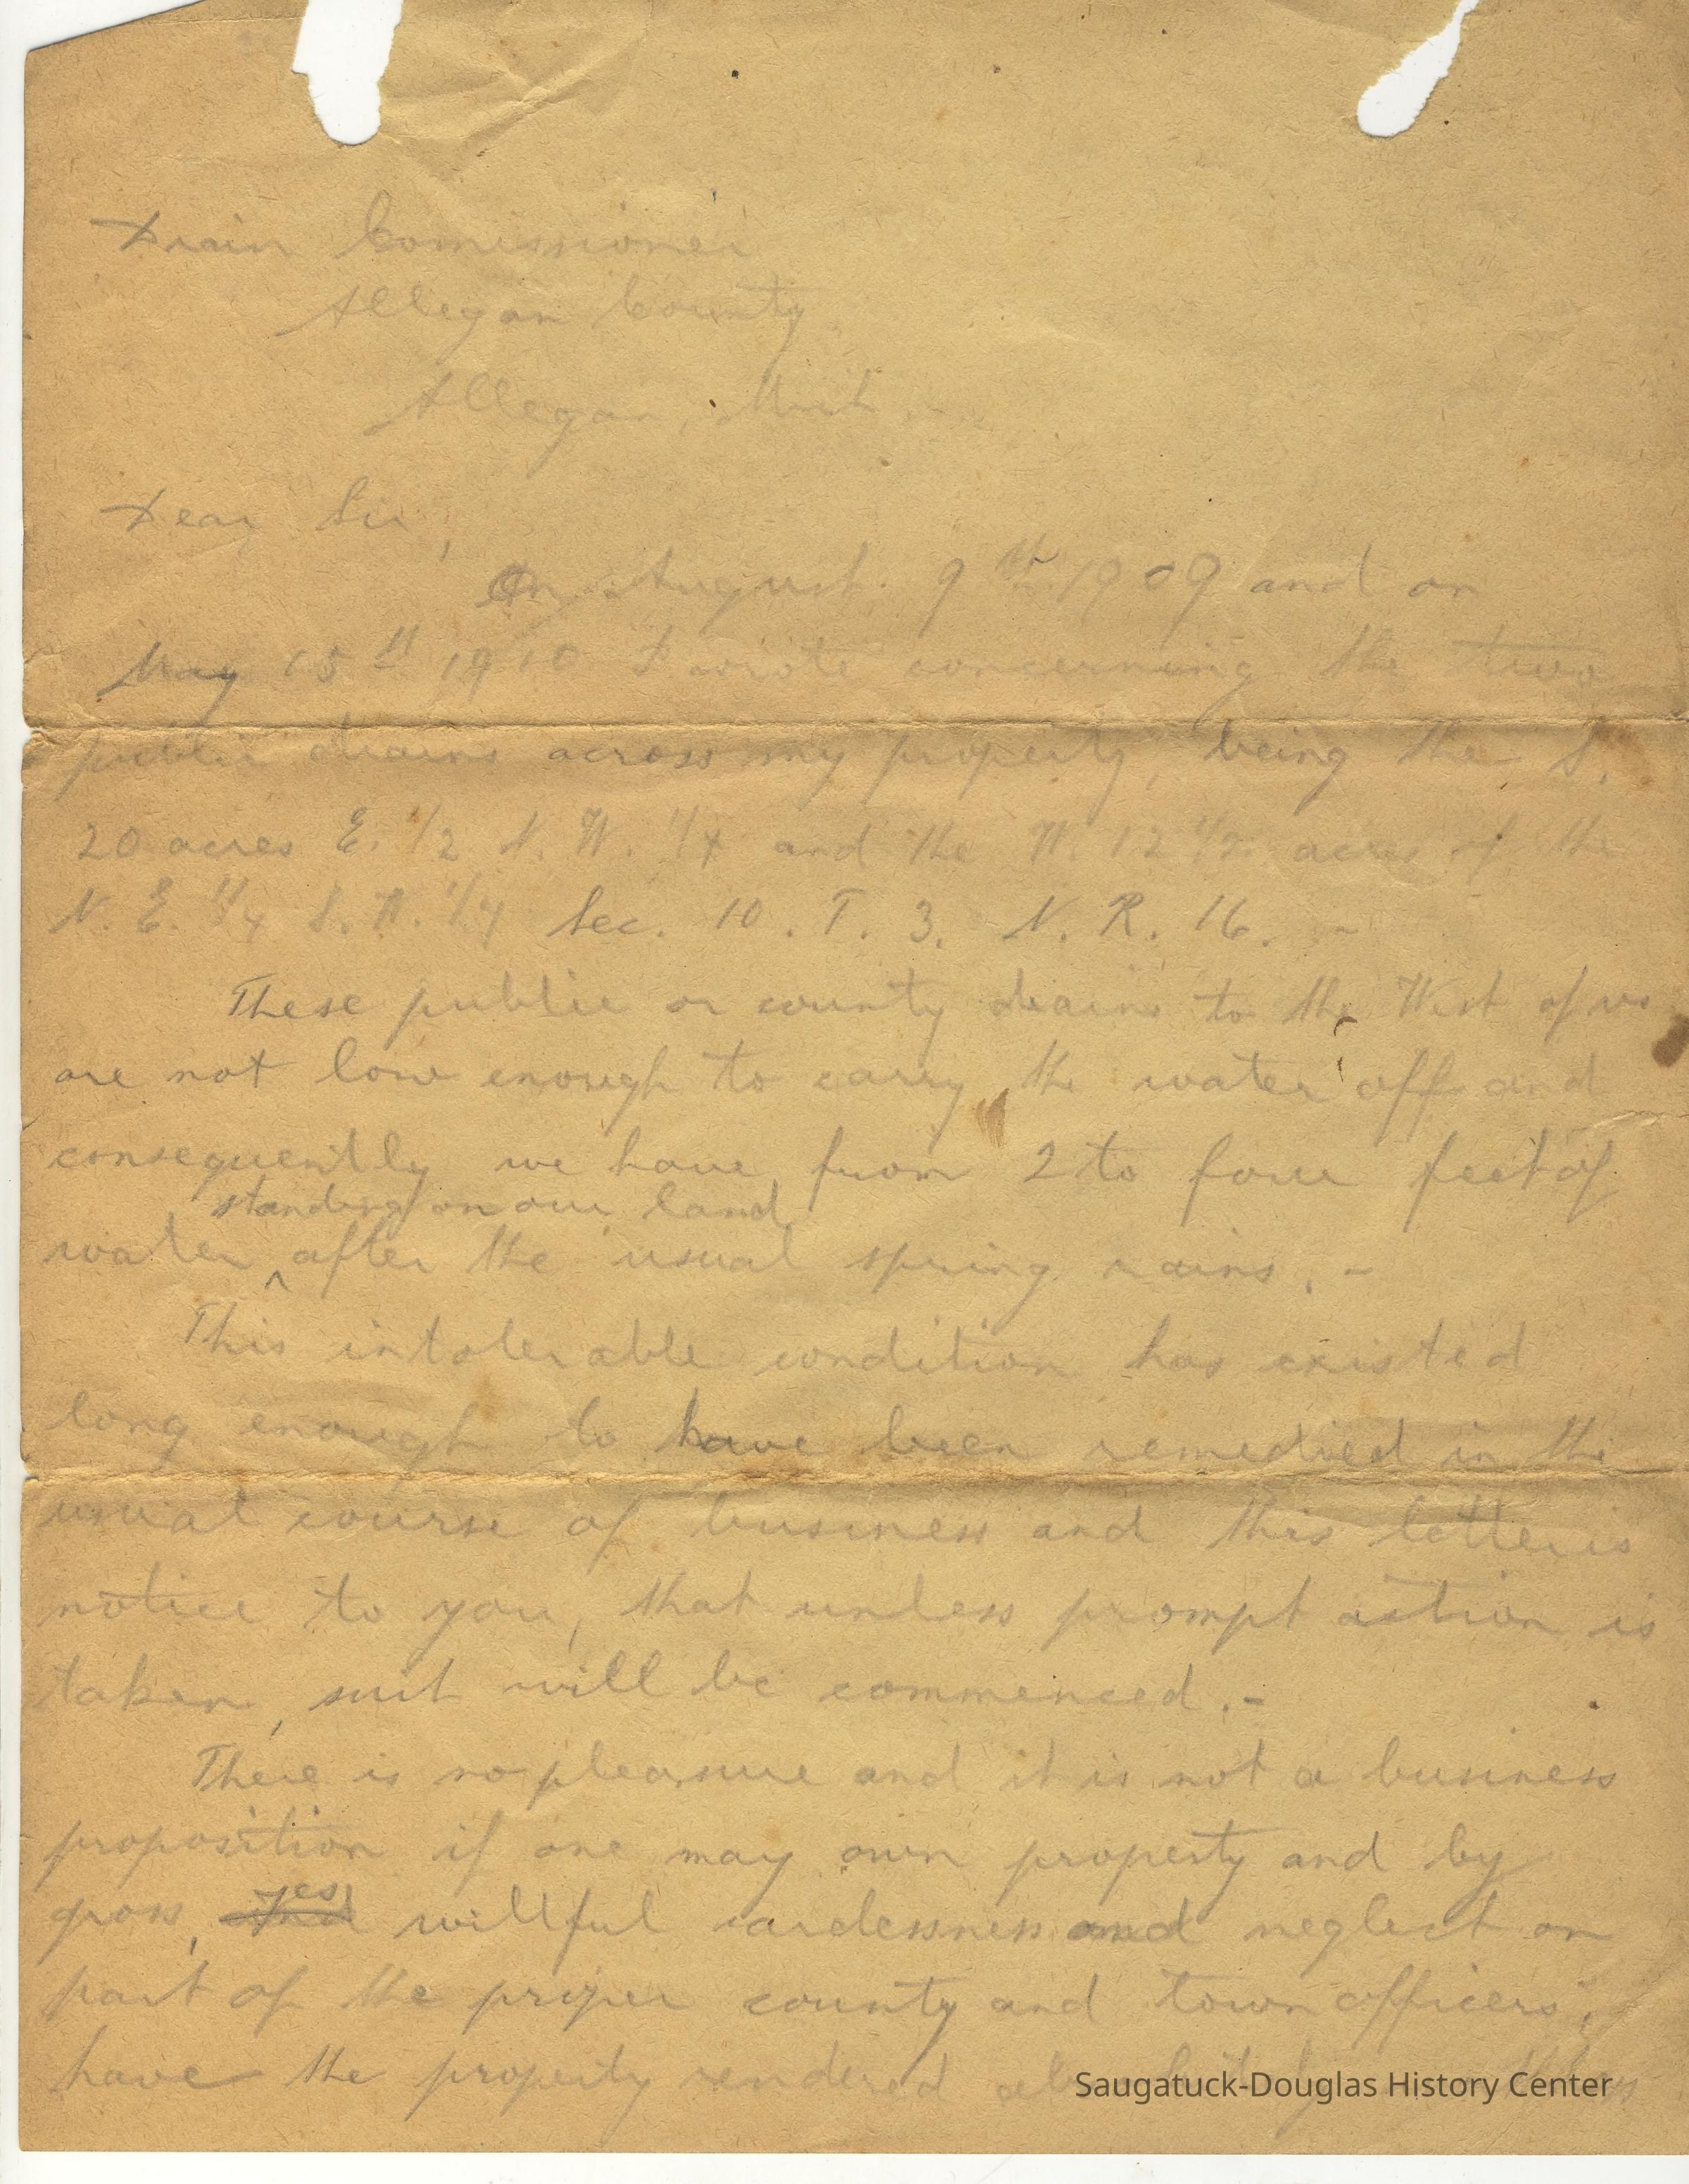 Drain Comissioner
Allegan County
Allegan, Mich. -
Dear Sir,
On August 9th 1909 and on
May 15th 1910 I wrote concerning the two
public drains across my property, being the S.
20 acres E. 1/2 N. W. 1/4 and the W. 12 1/2 acres of the
N. E. 1/4 S. W. 1/4 Sec. 10. T. 3. N. R. 16. -
These public or county drains to the West of us
are not low enough to carry the water off and
consequently we have from 2 to four feet of
standing on our land
water ^ after the usual spring rains. -
This intolerable condition has existed
long enough to have been remedied in the
usual course of business and this letter is
notice to you, that unless prompt action is
taken, suit will be commenced. -
There is no pleasure and it is not a business
proposition if one may own property and by
gross, yes willful carelessness and neglect on
part of the proper county and town officers,
have the property rendered
Saugatuck-Douglas History Center